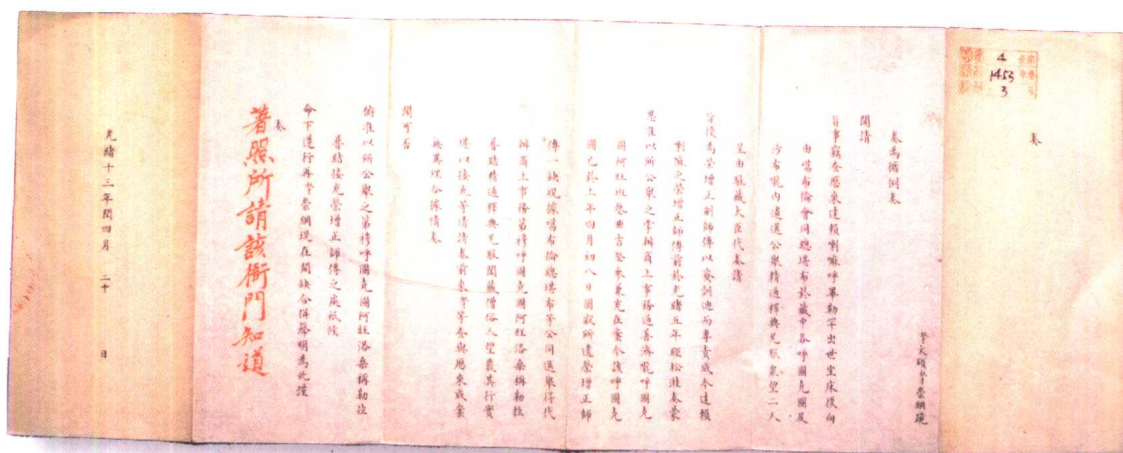 奏
4
1453
3
奴才文碩奴才崇綱跪
奏為循例奏
聞請
旨事竊查歷來達賴喇嘛呼畢勒罕出世坐床後向
由噶布倫會同總堪布於藏中各呼圖克圖及
沙布隆內遴選公舉精通釋典允服眾望二人
呈由駐藏大臣代奏請
旨後為榮增正副師傅以資訓迪而專責成今達賴
喇嘛之榮增正師傅前於光緒五年經松溎奏蒙
恩准以所公舉之掌辦商上事務通善濟嚨呼圖克
圖阿旺班墊曲吉堅參兼充在案今該呼圖克
圖已於上年四月初八日圓寂所遺榮增正師
傅一缺現據噶布倫總堪布等公同選舉得代
辦商上事務第穆呼圖克圖阿旺洛桑稱勒拉
普結精通釋典允服闔藏僧俗人望最其行實
堪以接充等情請奏前來奴才等查與歷來成案
無異理合據情奏
聞可否
俯准以所公舉之第穆呼圖克圖阿旺洛桑稱勒拉
普結接充榮增正師傅之處祇候
命下遵行再奴才崇綱現在開缺合併聲明為此謹
奏
著照所請該衙門知道
光緒十三年閏四月 二十 日